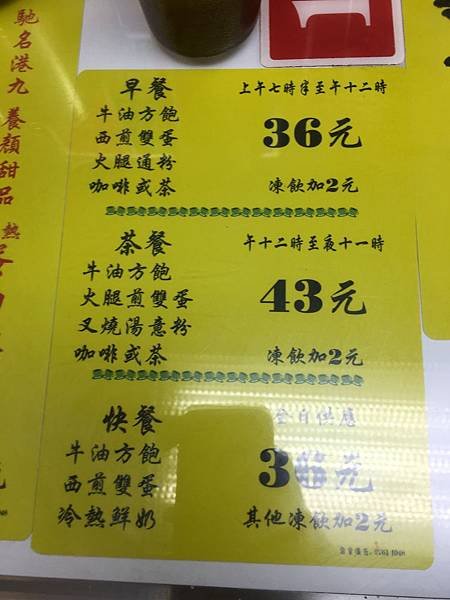 馳名港九
養顏甜品
早餐
上午七時半至午十二時
牛油方飽
西煎雙蛋
火腿通粉
咖啡或茶
36元
凍飲加2元
茶餐
午十二時至夜十一時
牛油方飽
火腿煎雙蛋
叉燒湯意粉
咖啡或茶
43元
凍飲加2元
快餐
全日供應
牛油方飽
西煎雙蛋
冷熱鮮奶
36元
其他凍飲加2元